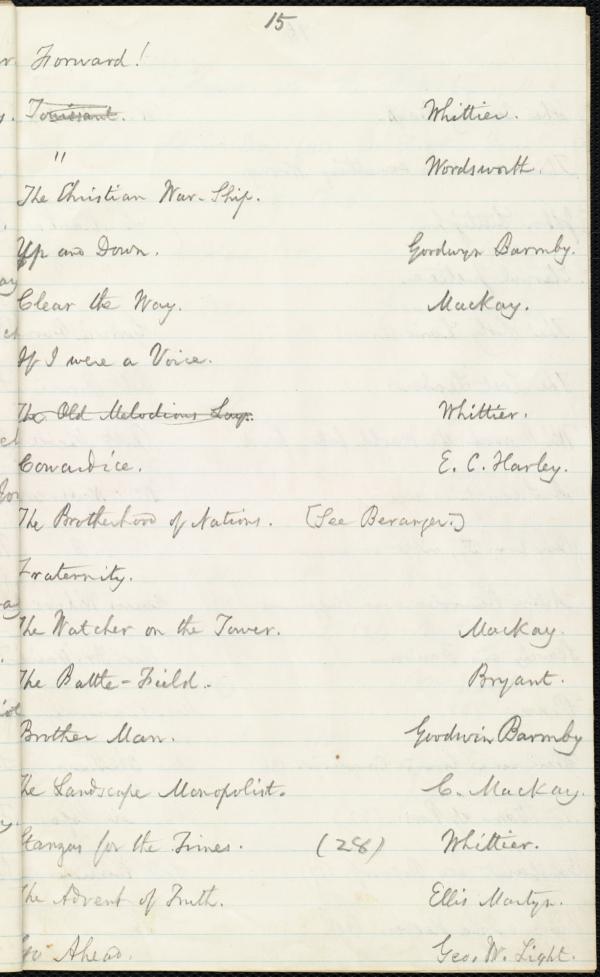 15
Forward!
Toussaint. Whittier.
" Wordsworth.
The Christian War-Ship.
Up and Down. Goodwyn Barmby.
Clear the Way. Mackay.
If I were a Voice.
The Old Melodious Lays. Whittier.
Cowardice. E. C. Harley.
The Brotherhood of Nations. [See Beranger.]
Fraternity.
The Watcher on the Tower. Mackay.
The Battle-Field. Bryant.
Brother Man. Goodwin Barmby
The Landscape Monopolist. C. Mackay.
Stanzas for the Times. (28) Whittier.
The Advent of Truth. Ellis Martyn.
Go Ahead. Geo. W. Light.